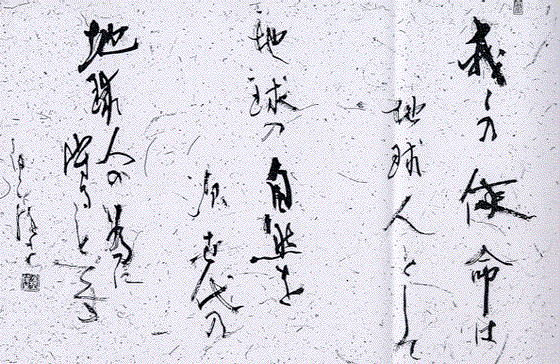 我々の使命は
地球人として
地球の自然を
次世代の
地球人の為に